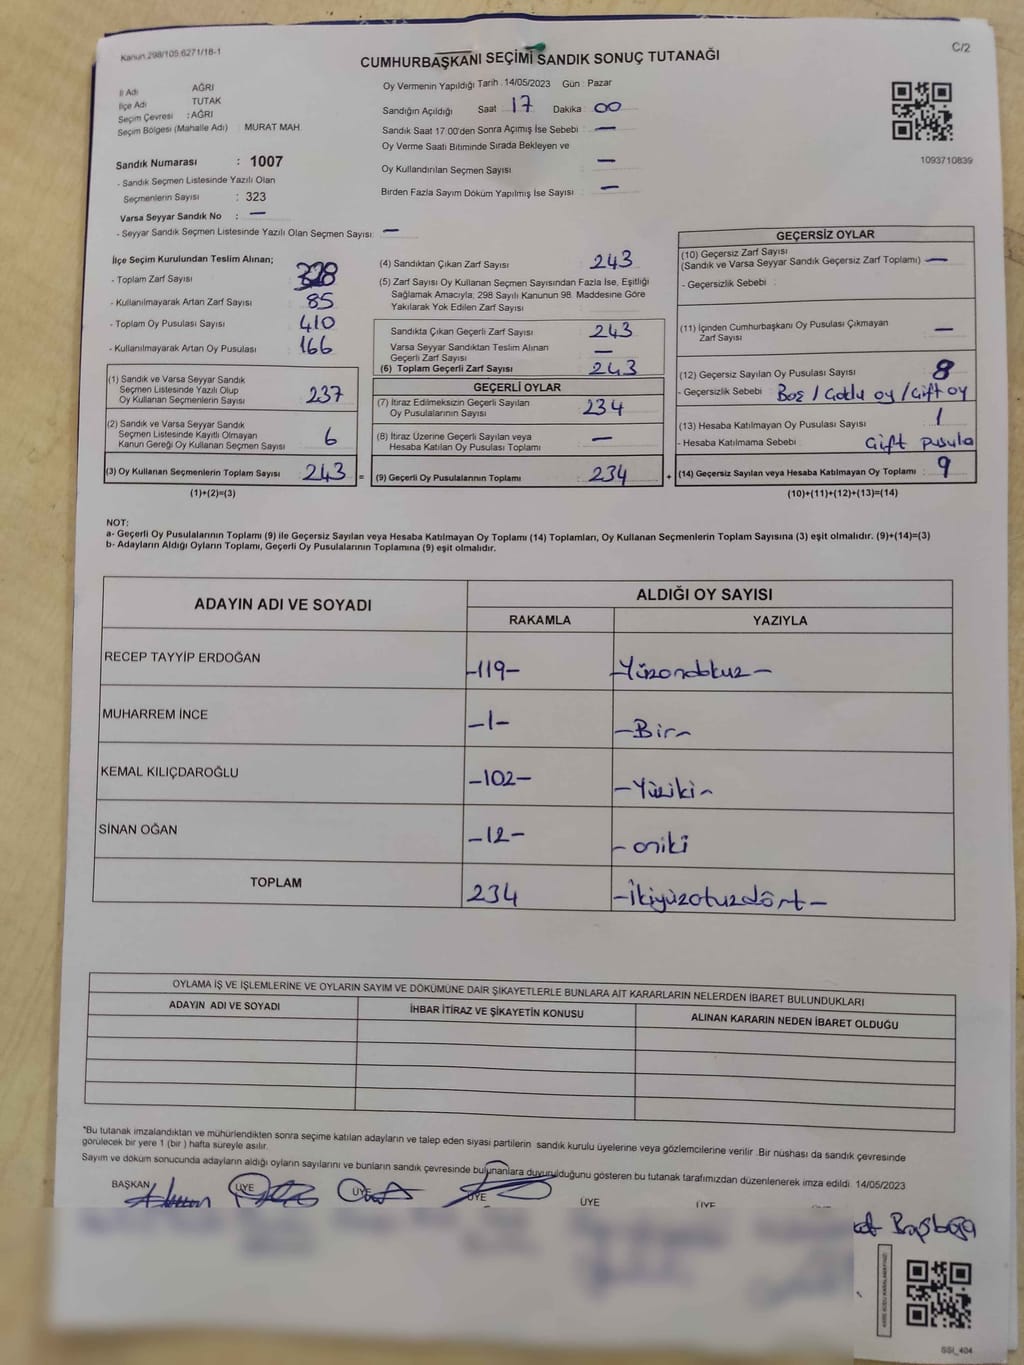 Kanun 298/105.6271/18-1
C/2
CUMHURBAŞKANI SEÇİMİ SANDIK SONUÇ TUTANAĞI
İl Adı AĞRI
İlçe Adı TUTAK
Seçim Çevresi : AĞRI
Seçim Bölgesi (Mahalle Adı) : MURAT MAH.
Sandık Numarası : 1007
- Sandık Seçmen Listesinde Yazılı Olan
Seçmenlerin Sayısı : 323
Varsa Seyyar Sandık No : —
- Seyyar Sandık Seçmen Listesinde Yazılı Olan Seçmen Sayısı: —
Oy Vermenin Yapıldığı Tarih : 14/05/2023 Gün : Pazar
Sandığın Açıldığı Saat 17 Dakika 00
Sandık Saat 17.00'den Sonra Açımış İse Sebebi : —
Oy Verme Saati Bitiminde Sırada Bekleyen ve
Oy Kullandırılan Seçmen Sayısı : —
Birden Fazla Sayım Döküm Yapılmış İse Sayısı : —
1093710839
İlçe Seçim Kurulundan Teslim Alınan;
- Toplam Zarf Sayısı : 328
- Kullanılmayarak Artan Zarf Sayısı : 85
- Toplam Oy Pusulası Sayısı : 410
- Kullanılmayarak Artan Oy Pusulası : 166
(1) Sandık ve Varsa Seyyar Sandık
Seçmen Listesinde Yazılı Olup
Oy Kullanan Seçmenlerin Sayısı : 237
(2) Sandık ve Varsa Seyyar Sandık
Seçmen Listesinde Kayıtlı Olmayan
Kanun Gereği Oy Kullanan Seçmen Sayısı : 6
(3) Oy Kullanan Seçmenlerin Toplam Sayısı : 243 =
(1)+(2)=(3)
(4) Sandıktan Çıkan Zarf Sayısı : 243
(5) Zarf Sayısı Oy Kullanan Seçmen Sayısından Fazla İse, Eşitliği
Sağlamak Amacıyla; 298 Sayılı Kanunun 98. Maddesine Göre
Yakılarak Yok Edilen Zarf Sayısı :
Sandıkta Çıkan Geçerli Zarf Sayısı : 243
Varsa Seyyar Sandıktan Teslim Alınan
Geçerli Zarf Sayısı : —
(6) Toplam Geçerli Zarf Sayısı : 243
GEÇERLİ OYLAR
(7) İtiraz Edilmeksizin Geçerli Sayılan
Oy Pusulalarının Sayısı : 234
(8) İtiraz Üzerine Geçerli Sayılan veya
Hesaba Katılan Oy Pusulası Toplamı : —
(9) Geçerli Oy Pusulalarının Toplamı : 234 +
GEÇERSİZ OYLAR
(10) Geçersiz Zarf Sayısı
(Sandık ve Varsa Seyyar Sandık Geçersiz Zarf Toplamı) : —
- Geçersizlik Sebebi :
(11) İçinden Cumhurbaşkanı Oy Pusulası Çıkmayan
Zarf Sayısı : —
(12) Geçersiz Sayılan Oy Pusulası Sayısı : 8
- Geçersizlik Sebebi : Boş / Çoklu oy / Çift oy
(13) Hesaba Katılmayan Oy Pusulası Sayısı : 1
- Hesaba Katılmama Sebebi : Çift pusula
(14) Geçersiz Sayılan veya Hesaba Katılmayan Oy Toplamı : 9
(10)+(11)+(12)+(13)=(14)
NOT:
a- Geçerli Oy Pusulalarının Toplamı (9) ile Geçersiz Sayılan veya Hesaba Katılmayan Oy Toplamı (14) Toplamları, Oy Kullanan Seçmenlerin Toplam Sayısına (3) eşit olmalıdır. (9)+(14)=(3)
b- Adayların Aldığı Oyların Toplamı, Geçerli Oy Pusulalarının Toplamına (9) eşit olmalıdır.
ADAYIN ADI VE SOYADI
ALDIĞI OY SAYISI
RAKAMLA YAZIYLA
RECEP TAYYİP ERDOĞAN -119- -Yüzondokuz-
MUHARREM İNCE -1- -Bir-
KEMAL KILIÇDAROĞLU -102- -Yüziki-
SİNAN OĞAN -12- -oniki
TOPLAM 234 -İkiyüzotuzdört-
OYLAMA İŞ VE İŞLEMLERİNE VE OYLARIN SAYIM VE DÖKÜMÜNE DAİR ŞİKAYETLERLE BUNLARA AİT KARARLARIN NELERDEN İBARET BULUNDUKLARI
ADAYIN ADI VE SOYADI İHBAR İTİRAZ VE ŞİKAYETİN KONUSU ALINAN KARARIN NEDEN İBARET OLDUĞU
*Bu tutanak imzalandıktan ve mühürlendikten sonra seçime katılan adayların ve talep eden siyasi partilerin sandık kurulu üyelerine veya gözlemcilerine verilir. Bir nüshası da sandık çevresinde
görülecek bir yere 1 (bir ) hafta süreyle asılır.
Sayım ve döküm sonucunda adayların aldığı oyların sayılarını ve bunların sandık çevresinde bulunanlara duyurulduğunu gösteren bu tutanak tarafımızdan düzenlenerek imza edildi. 14/05/2023
BAŞKAN ÜYE ÜYE ÜYE ÜYE ÜYE
SSI_404